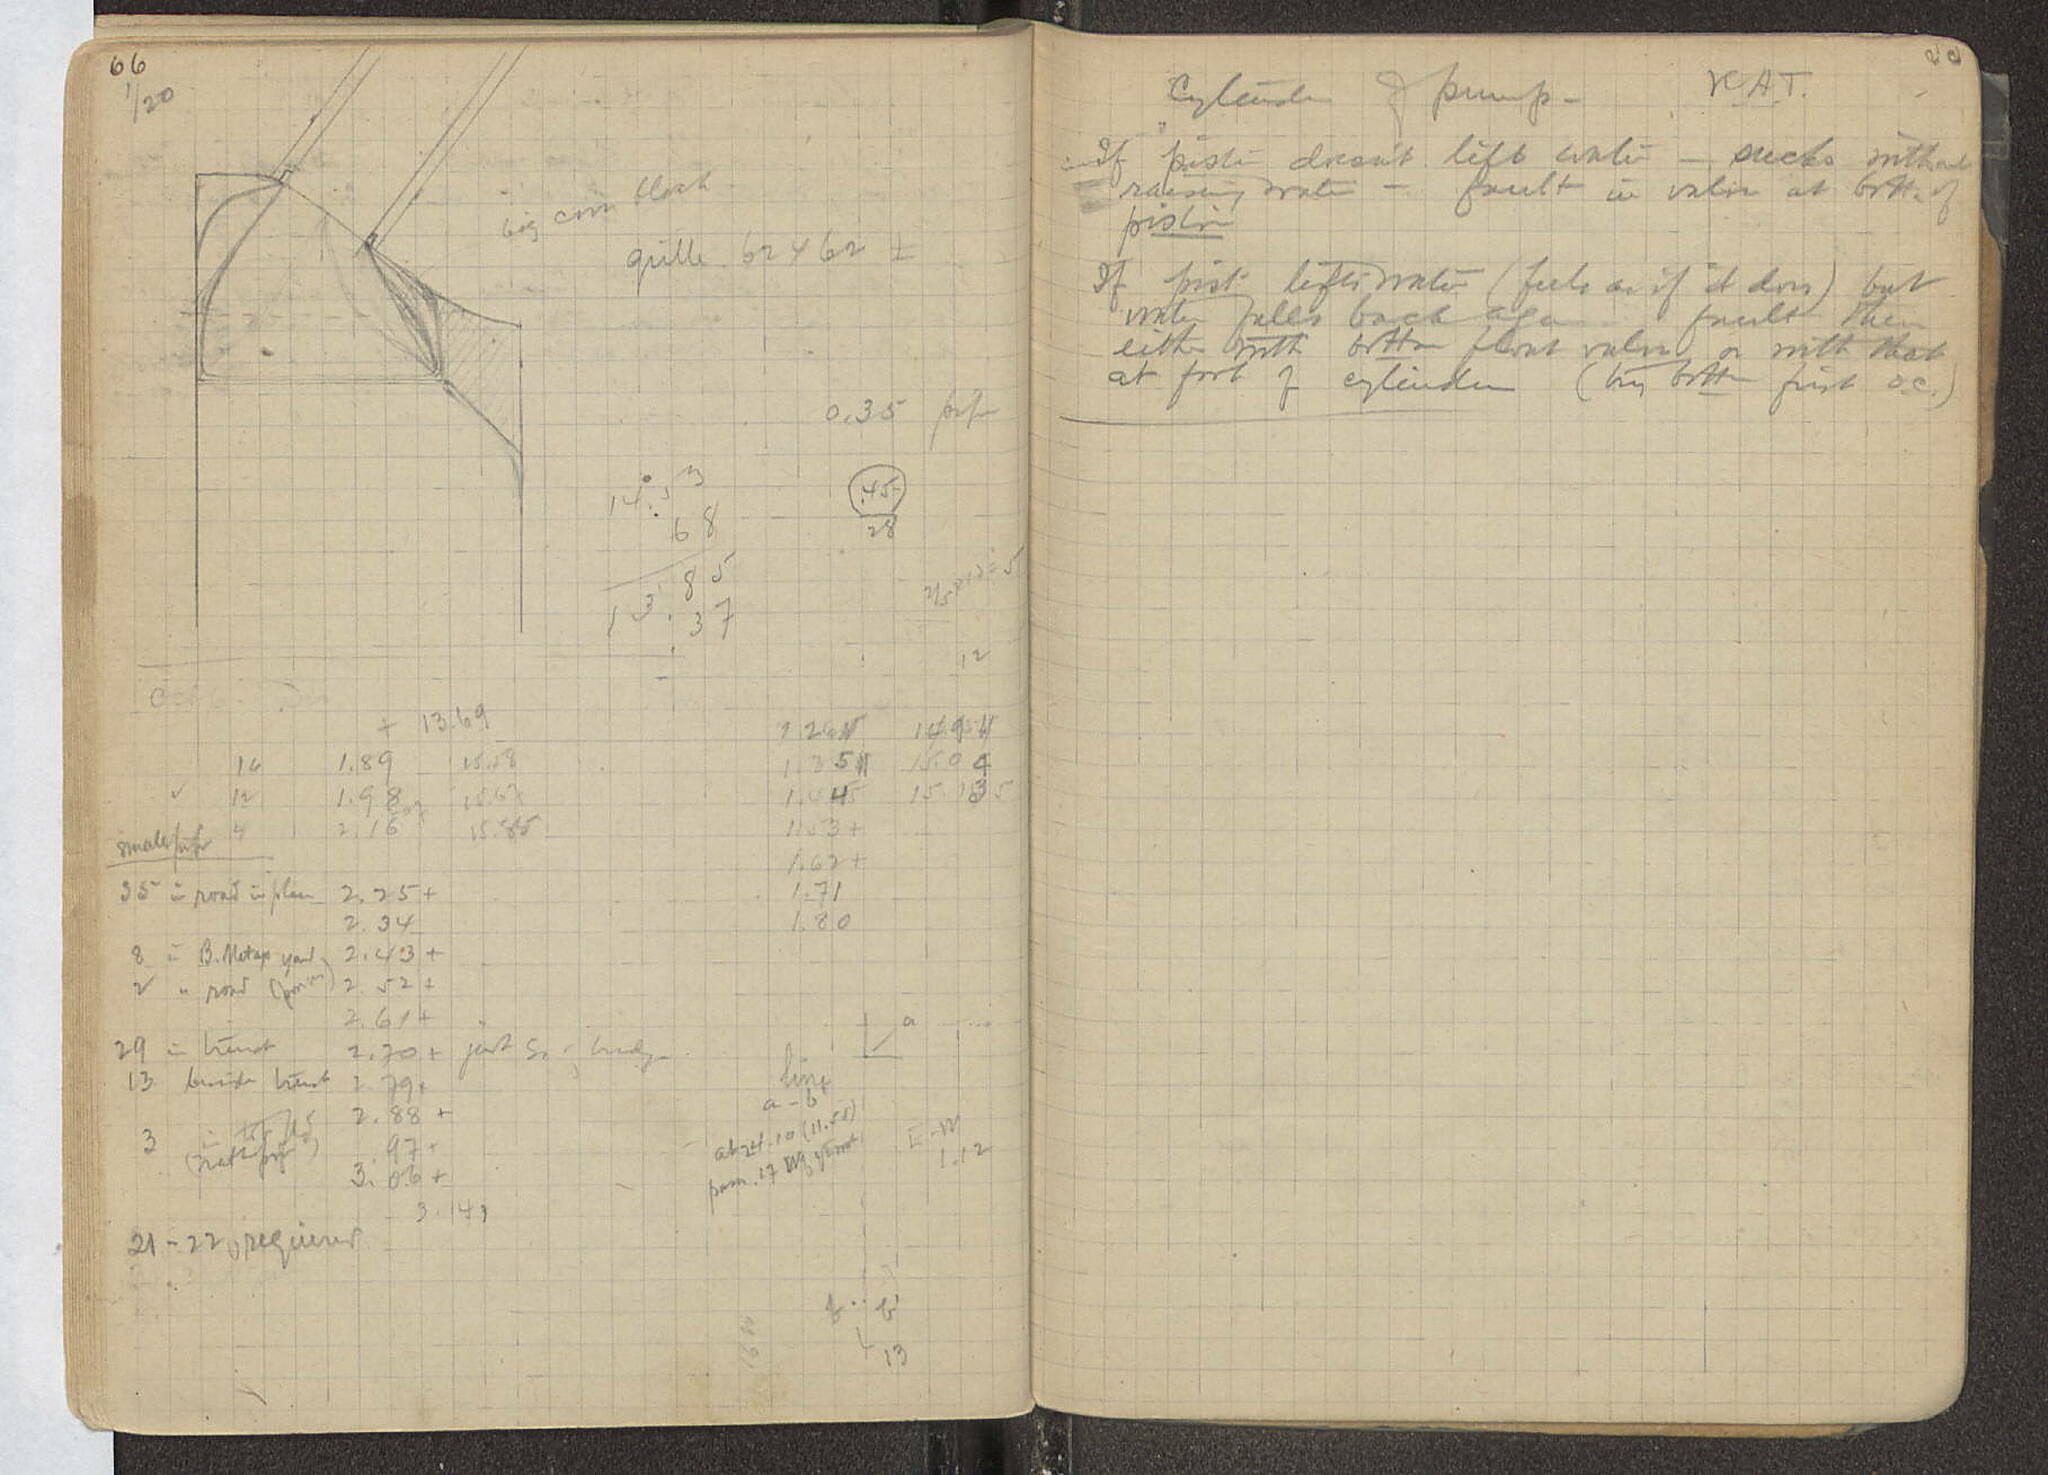 66
1/20
big corn block
grille 62 x 62 ±
0.35
.45
28
14.53
68
85
13.37
12
+ 13.69
16 1.89 15.58
✓ 12 1.98 15.67
4 2.16 15.85
small
35 in road in plan 2.25+
2.34
8 in B. Metax yard 2.43+
2 " road 2.52+
2.61+
29 in trench 2.70+ just S. of bridge
13 beside trench 2.79+
2.88+
3 in .97+
3.06+
3.14
21-22 required
1.35 15.04
1.45 15.135
1.53+
1.62+
1.71
1.80
a
line
a - b
at 24.10 (11.55)
E-W
1.12
b
13
Cylinder of pump - K.A.T.
If piston doesn't lift water - sucks without
raising water - fault in valve at bottom of
piston
If pist. lifts water (feels as if it does) but
water falls back again fault then
either with bottom float valve or with that
at foot of cylinder (try bottom first o.c.)